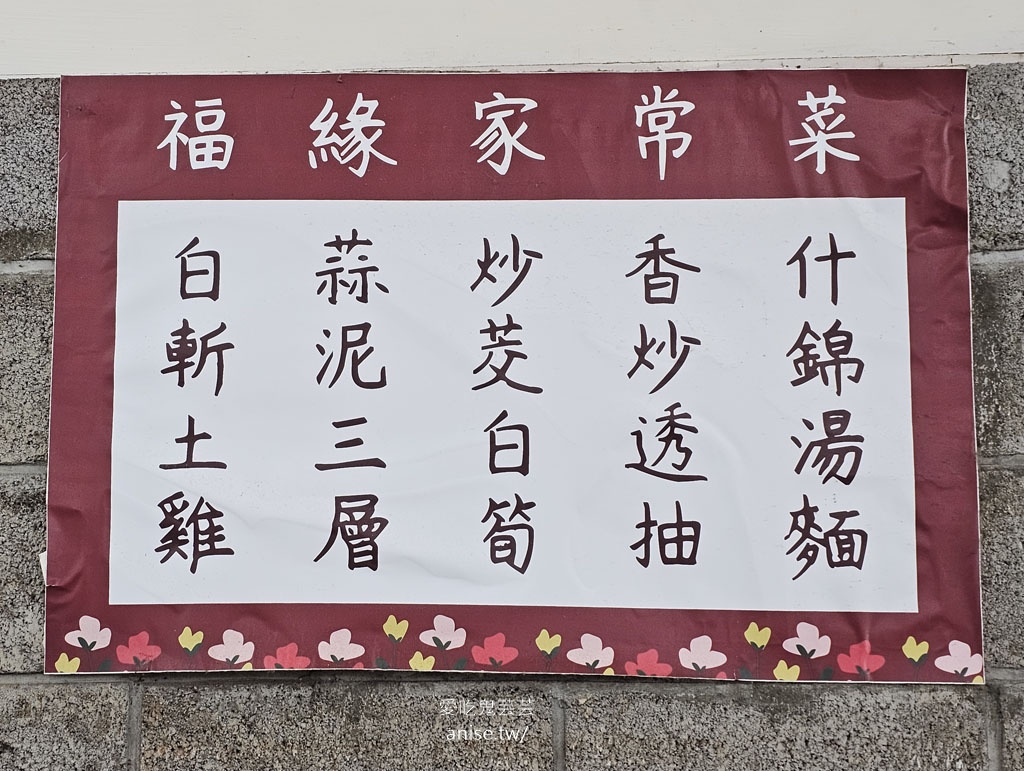 福緣家常菜
白斬土雞
蒜泥三層
炒茭白筍
香炒透抽
什錦湯麵
愛吃鬼芸芸
anise.tw/